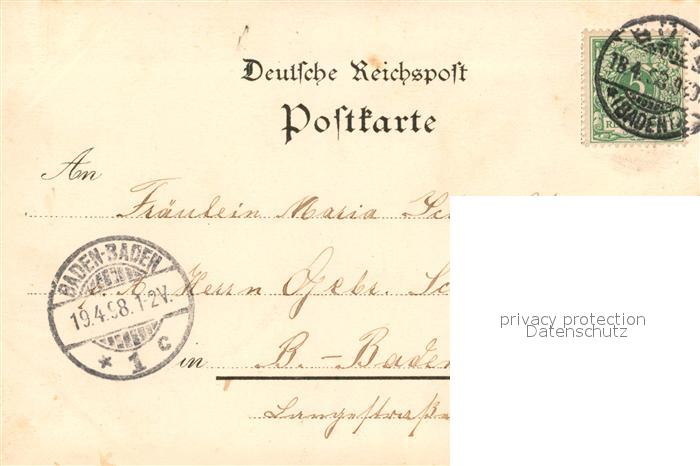 Deutsche Reichspost
Postkarte
An
Fräulein Maria
Herrn Gebr.
in B.-Baden
Langestraße
BADEN-BADEN
19.4.98.1-2V.
* 1 c
18.4.98
(BADEN)
5
privacy protection
Datenschutz